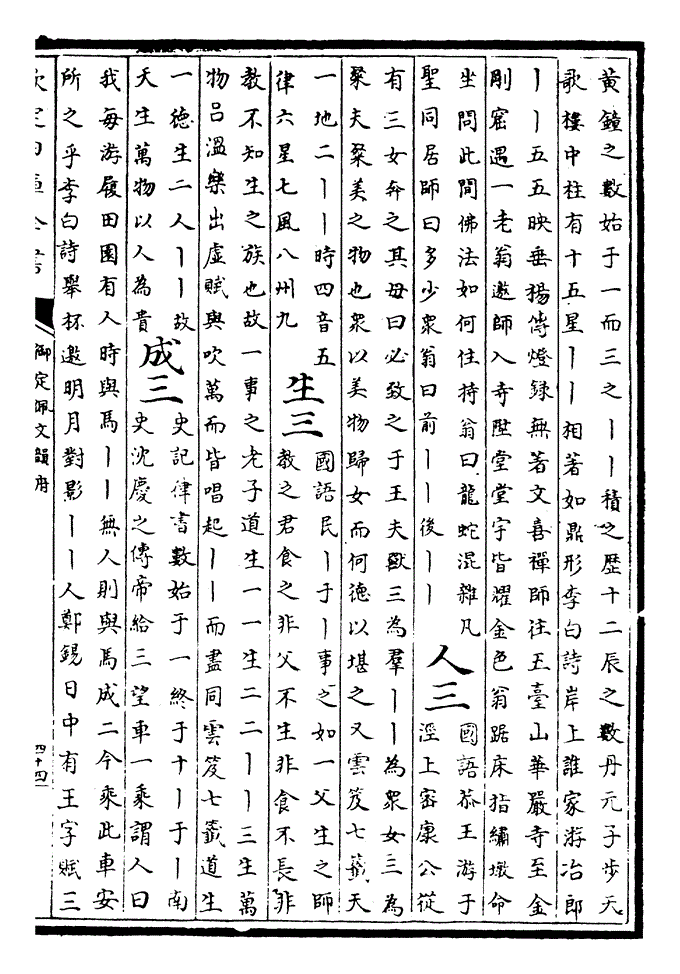 黄鐘之數始于一而三之丨丨積之歴十二辰之數丹元子步天
歌樓中柱有十五星丨丨相著如鼎形李白詩岸上誰家游冶郎
丨丨五五映垂楊傳燈録無著文喜禪師往五臺山華嚴寺至金
剛窟遇一老翁邀師入寺陞堂堂宇皆耀金色翁踞床指繡墩命
坐問此間佛法如何住持翁曰龍蛇混雜凡
聖同居師曰多少衆翁曰前丨丨後丨丨
人三
國語恭王游于
涇上密康公從
有三女奔之其母曰必致之于王夫獸三為羣丨丨為衆女三為
粲夫粲美之物也衆以美物歸女而何德以堪之又雲笈七籤天
一地二丨丨時四音五
律六星七風八州九
生三
國語民丨于丨事之如一父生之師
教之君食之非父不生非食不長非
教不知生之族也故一事之老子道生一一生二二丨丨三生萬
物吕温樂出虛賦與吹萬而皆唱起丨丨而盡同雲笈七籤道生
一德生二人丨丨故
天生萬物以人為貴
成三
史記律書數始于一終于十丨于丨南
史沈慶之傳帝給三望車一乘謂人曰
我每游履田園有人時與馬丨丨無人則與馬成二今乘此車安
所之乎李白詩舉杯邀明月對影丨丨人鄭錫日中有王字賦三
欽定四庫全書
御定佩文韻府
四十四